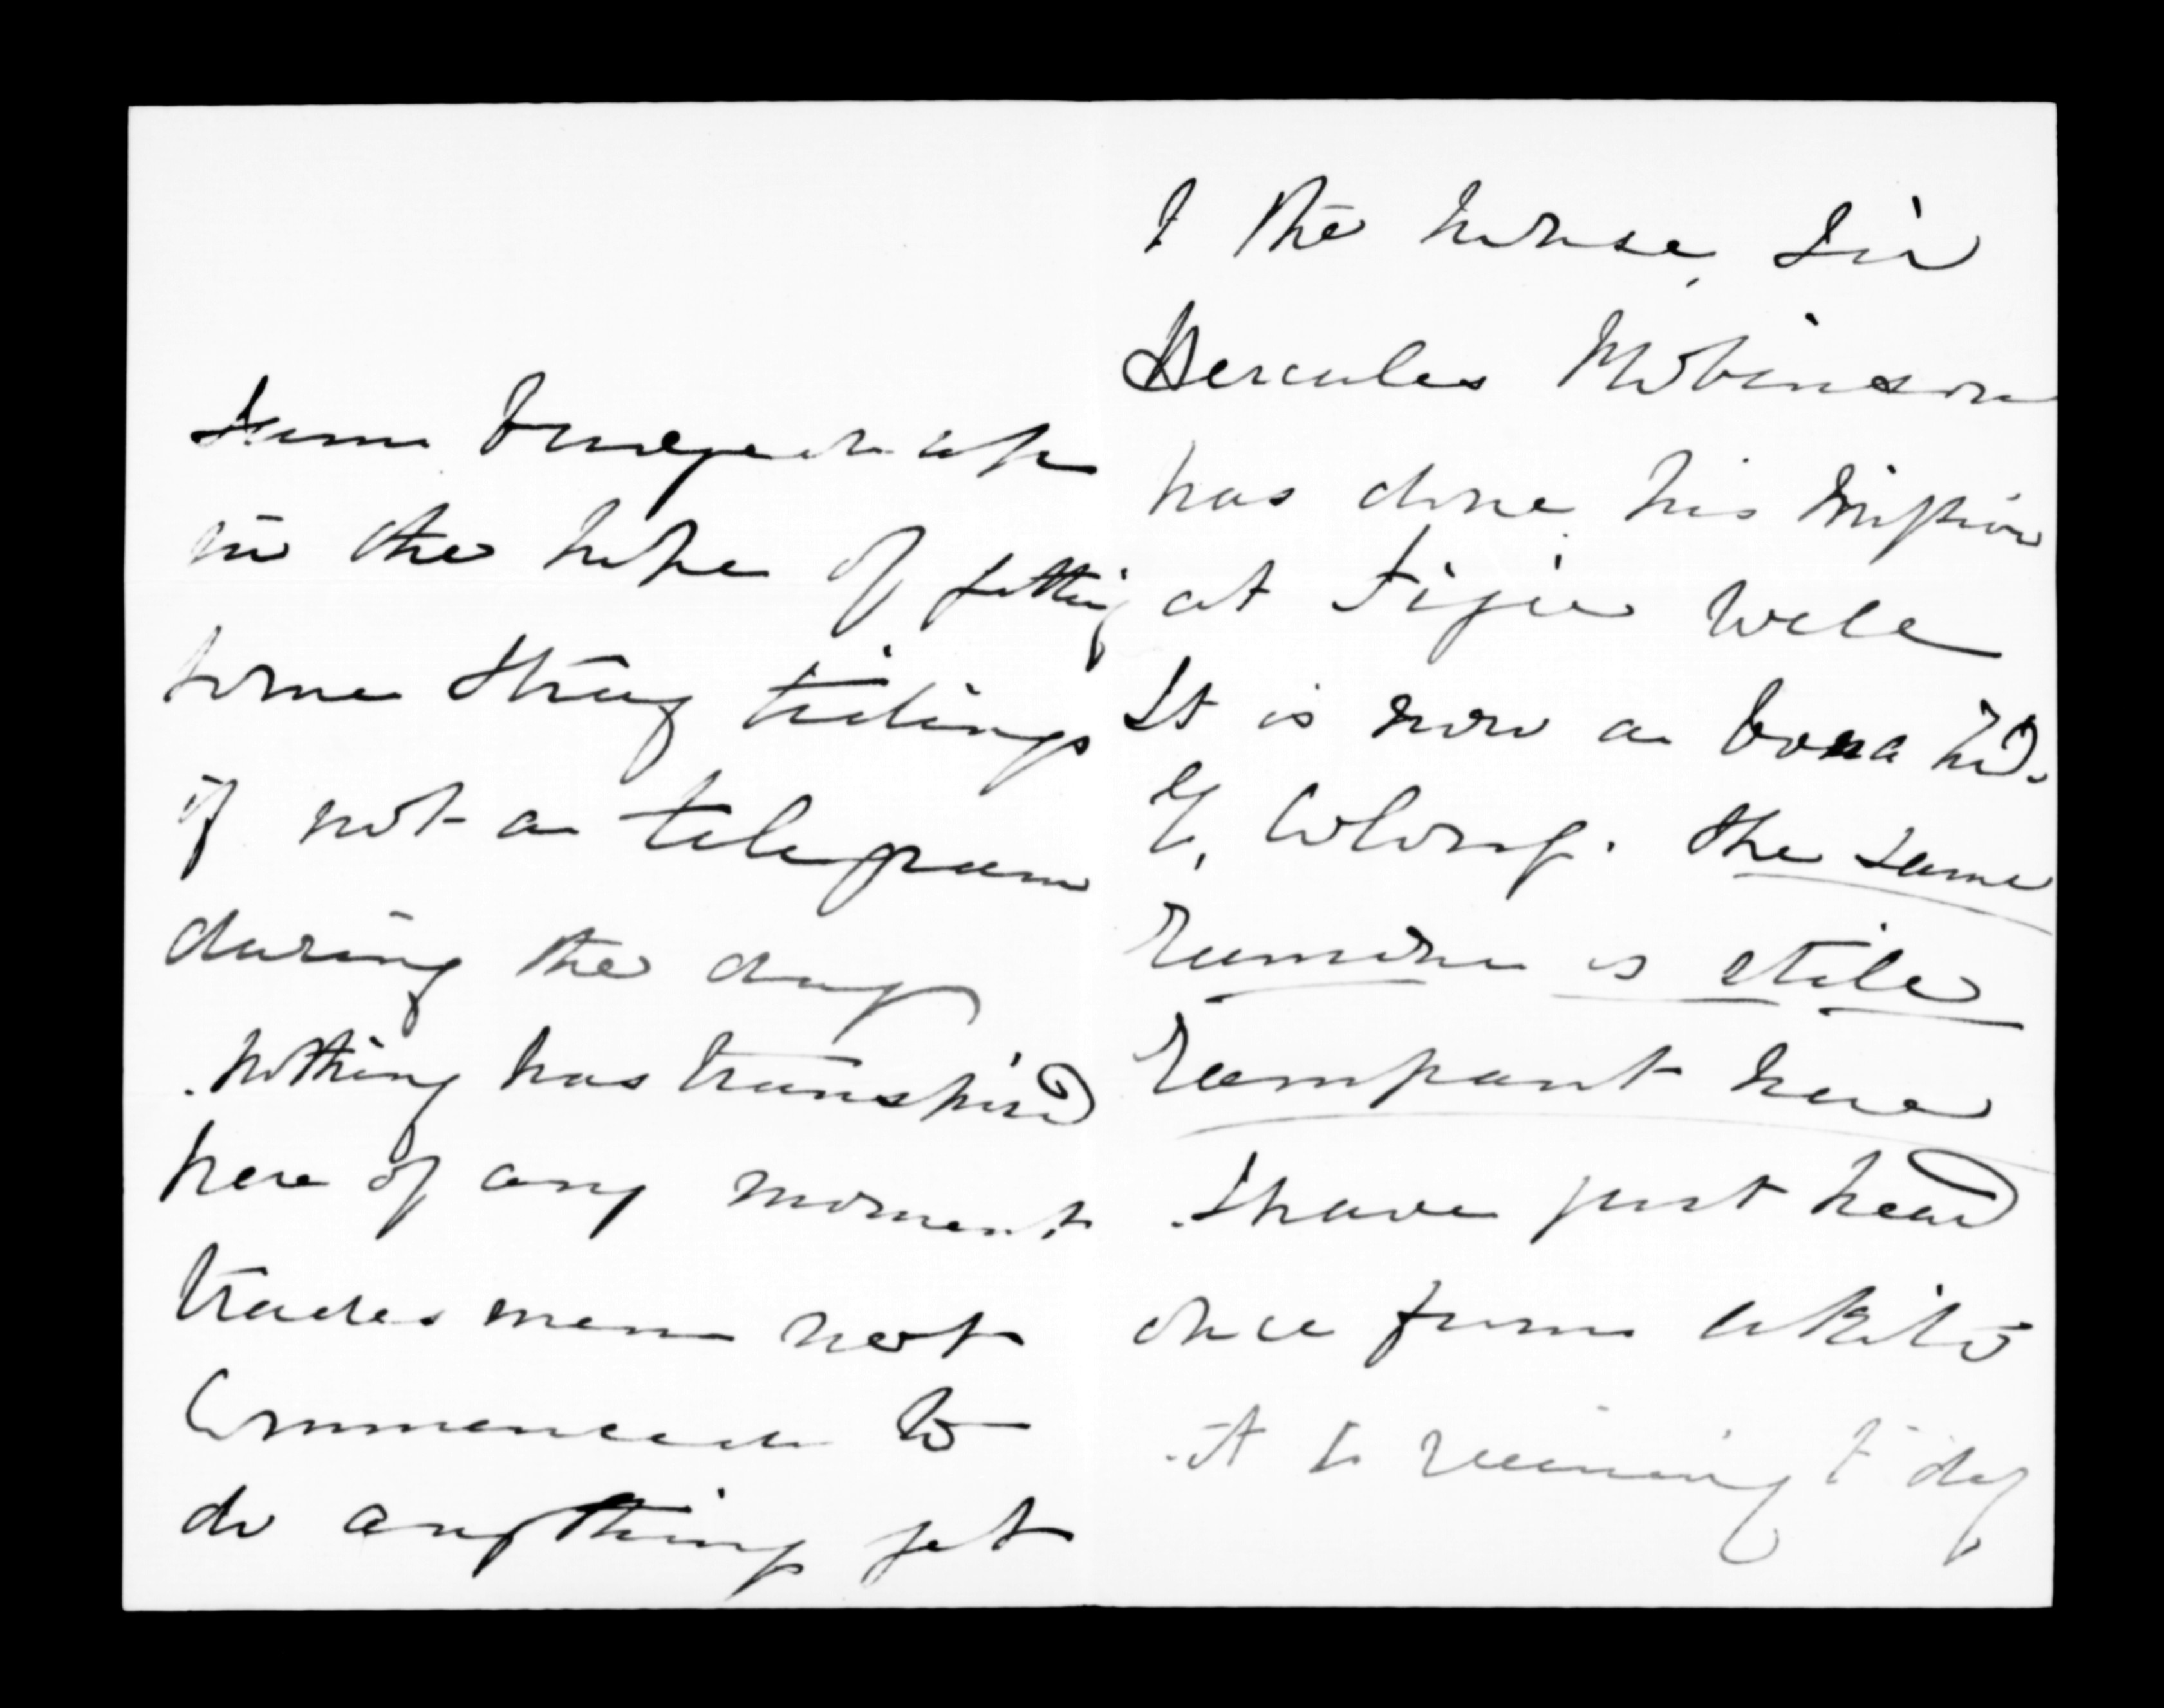 from
in the hope of getting
some thing tidings
if not a telegram
during the day
. Nothing has transpired
here of any moment
tradesmen not
Commenced to
do anything yet
t the house, Sir
Hercules Robinson
has done his mission
at Fijii well
It is now a bona fide
Colony. the same
rumour is still
rampant here
. I have just heard
once from
. it is raining t day